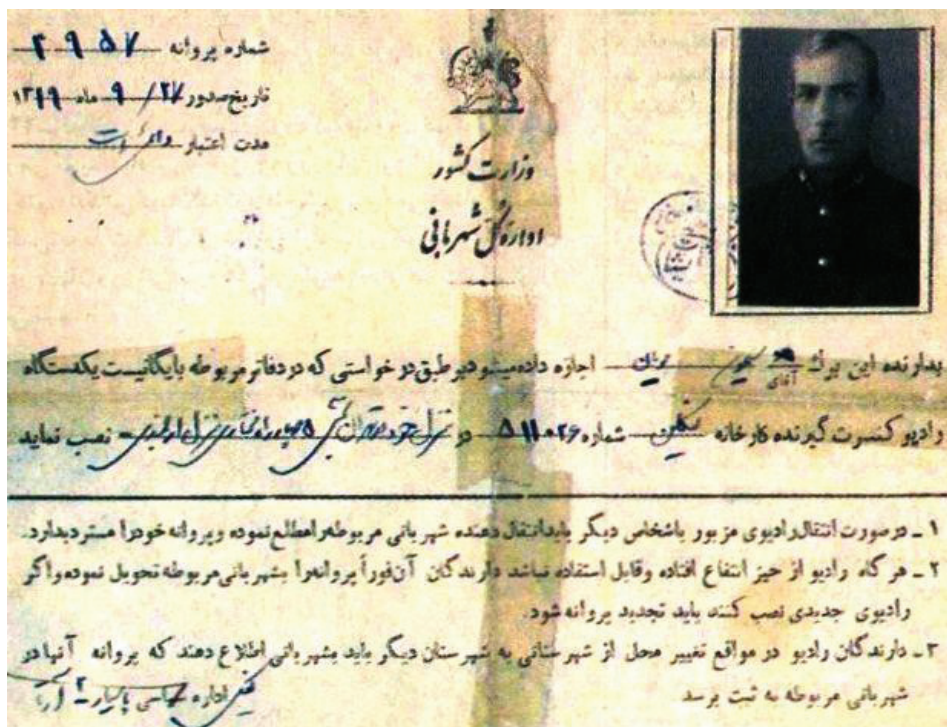 شماره پروانه ۲۹۵۷
تاریخ صدور ۲۷/ ۹ ماه ۱۳۱۹
مدت اعتبار
وزارت کشور
اداره کل شهربانی
بدارنده این برك آقای اجازه داده میشود بر طبق درخواستی که در دفاتر مربوطه بایگانیست یکدستگاه
رادیو کنسرت گیرنده کارخانه شماره ۵۱۱۰۲۶ در نصب نماید
۱ - در صورت انتقال رادیوی مزبور باشخاص دیگر باید انتقال دهنده شهربانی مربوطه را مطلع نموده و پروانه خود را مسترد بدارد.
۲ - هر گاه رادیو از حیز انتفاع افتاده وقابل استفاده نباشد دارندگان آن فوراً پروانه را بشهربانی مربوطه تحویل نموده واگر
رادیوی جدیدی نصب کنند باید تجدید پروانه شود.
۳ - دارندگان رادیو در مواقع تغییر محل از شهرستانی به شهرستان دیگر باید بشهربانی اطلاع دهند که پروانه آنها در
شهربانی مربوطه به ثبت برسد
اداره سیاسی پاسیار ۲